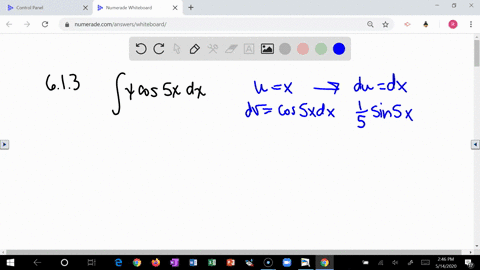 Control Panel
Numerade Whiteboard
numerade.com/answers/whiteboard/
6.1.3 ∫ x cos 5x dx u = x → du = dx
dv = cos 5x dx 1/5 sin 5x
2:46 PM
5/14/2020